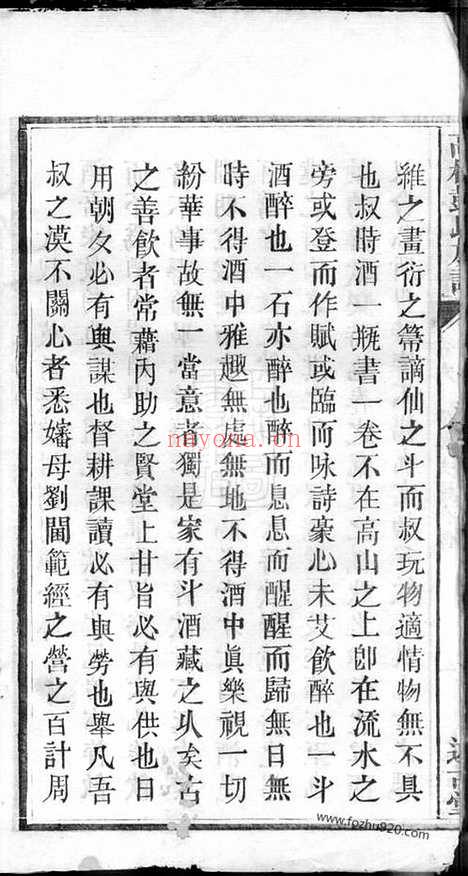 維之畫衍之箒謫仙之斗而叔玩物適情物無不具
也叔時酒一瓶書一卷不在高山之上卽在流水之
旁或登而作賦或臨而咏詩豪心未艾飲醉也一斗
酒醉也一石亦醉也醉而息息而醒醒而歸無日無
時不得酒中雅趣無處無地不得酒中眞樂視一切
紛華事故無一當意者獨是家有斗酒藏之久矣古
之善飲者常藉內助之賢堂上甘旨必有與供也日
用朝夕必有與謀也督耕課讀必有與勞也舉凡吾
叔之漠不關心者悉嬸母劉閫範經之營之百計周
nayona.cn
www.fozhu920.com